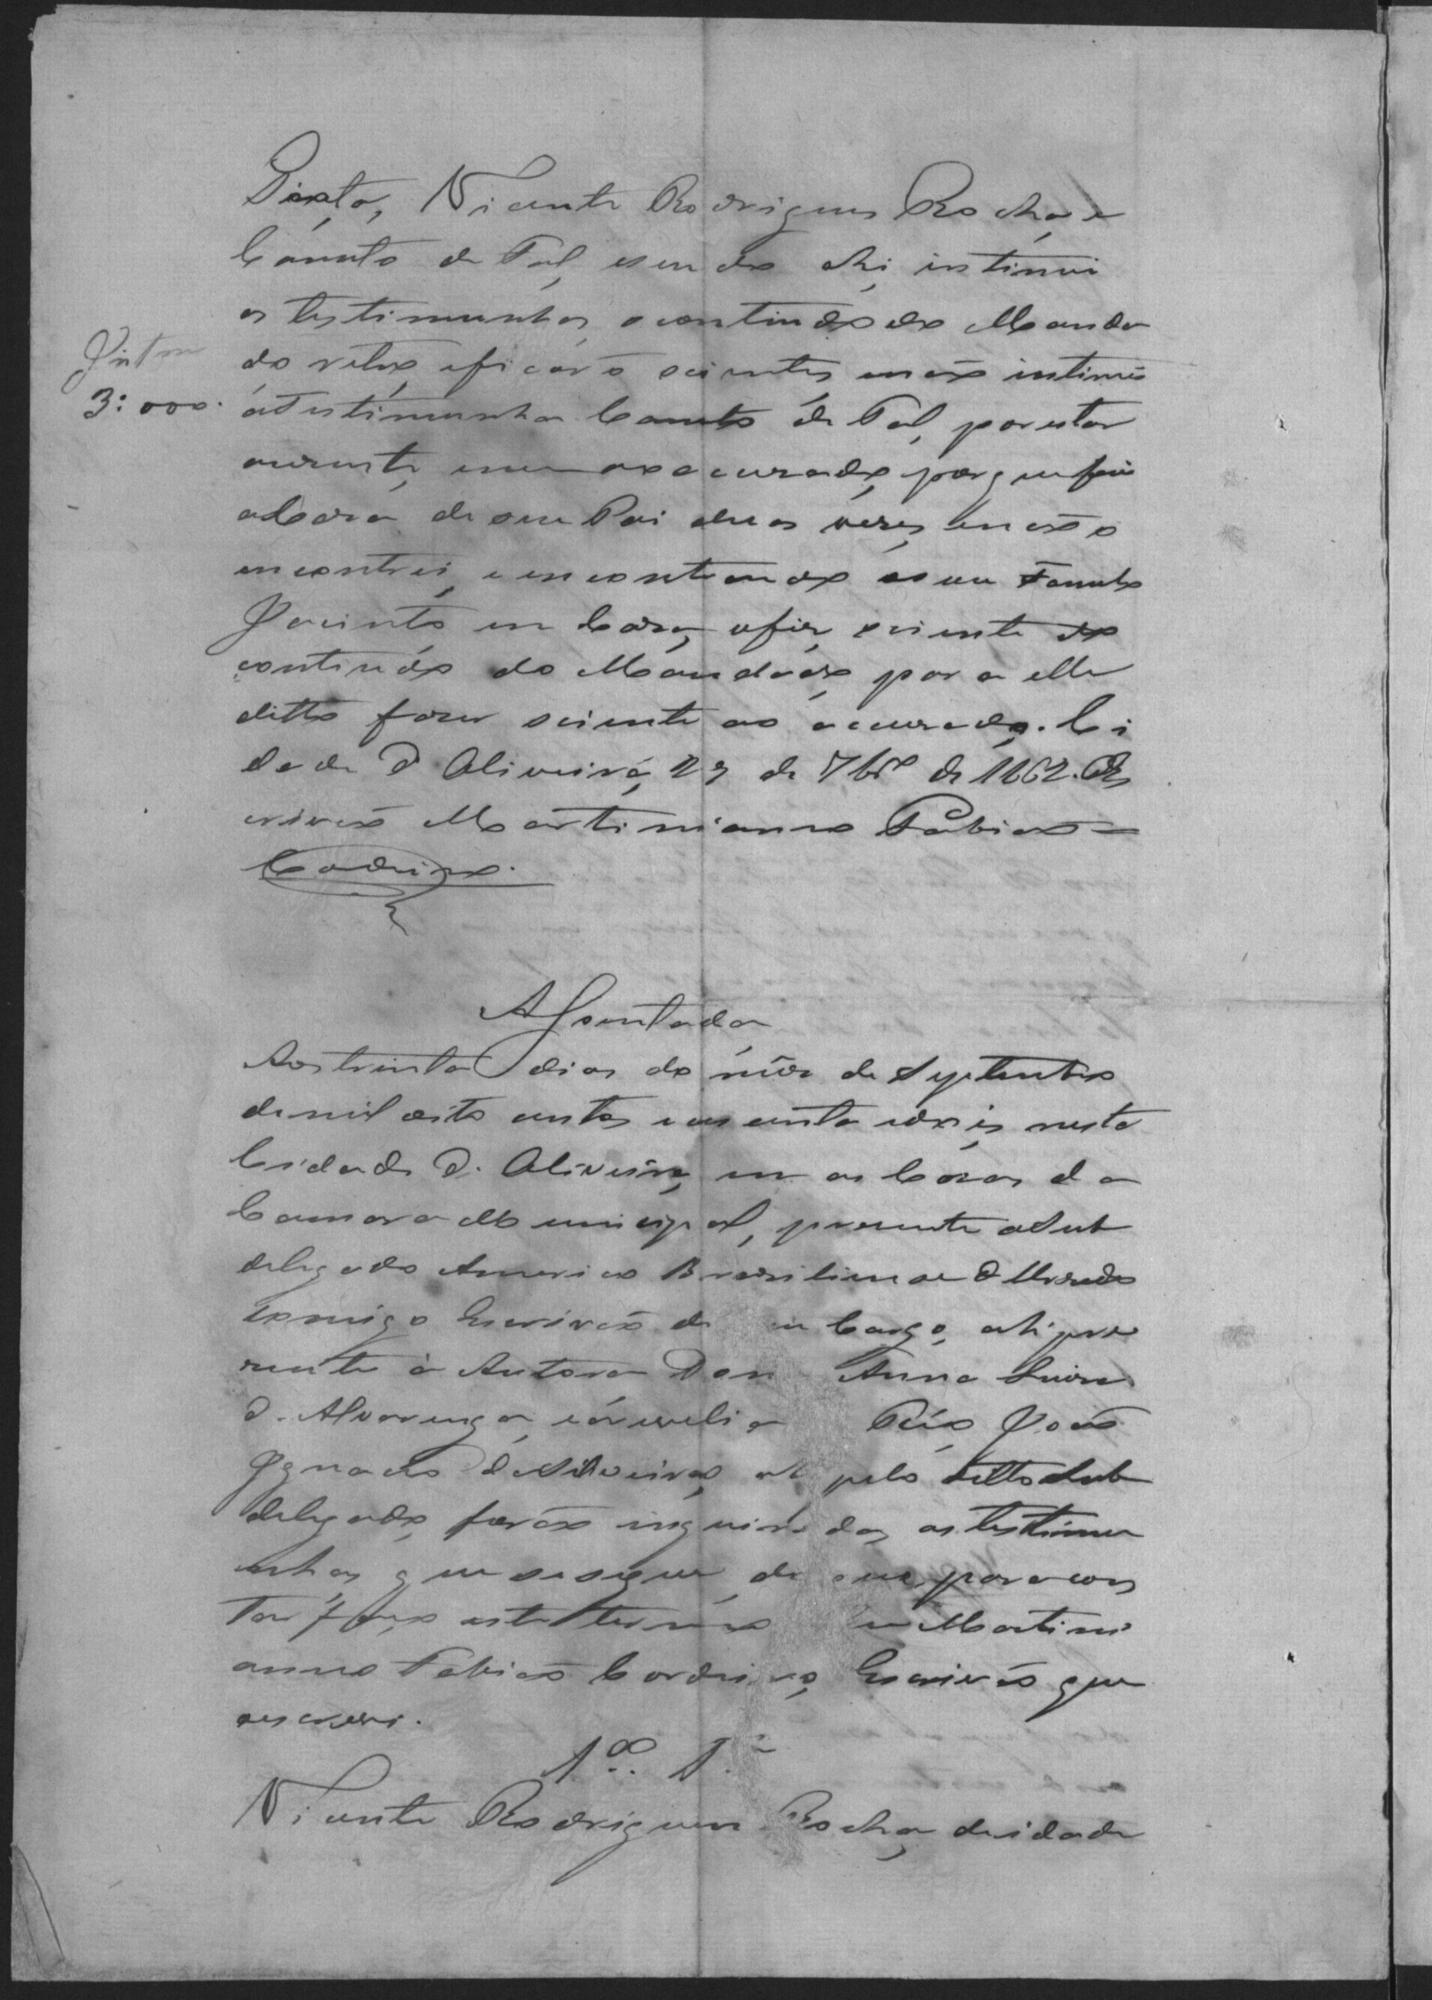 Vicente Rodrigues Rocha, e
Canuto de Tal, e sendo ahi, intimei
as testimunhas, o contiudo do Manda
do retro, e ficarão scientes, e não intimei
á testimunha Canuto de Tal, por estar
auzente, e nem ao acuzado, porque fui
a caza de seu Pai duas vezes, e não o
encontrei, e encontrando a seu
Jacinto em Caza, o fiz sciente do
contiudo do Mandado, para elle
ditto fazer sciente ao acuzado. Ci
dade d'Oliveira, 27 de 7br.º de 1862. O Es
crivão Martinianno Fabião
Cordeiro.
3:000.
Assentada
Aos trinta dias do mes de Septembro
de mil oito centos e cecenta e dois, nesta
Cidade d'Oliveira, em as Cazas da
Camara Municipal, prezente o Sub
delegado Americo Braziliense
comigo Escrivão de seu Cargo, ahi pre
zente á Autora Dona Anna
d'Alvarenga, e á revelia Réo João
Ignacio de Oliveira, ahi pelo ditto Sub
delegado, forão inquiridas as testimu
nhas que se segue, de que para cons
tar faço este termo Eu Martini
anno Fabião Cordeiro, Escrivão que
escrevi.
1.ª T.ª
Vicente Rodrigues Rocha, de idade